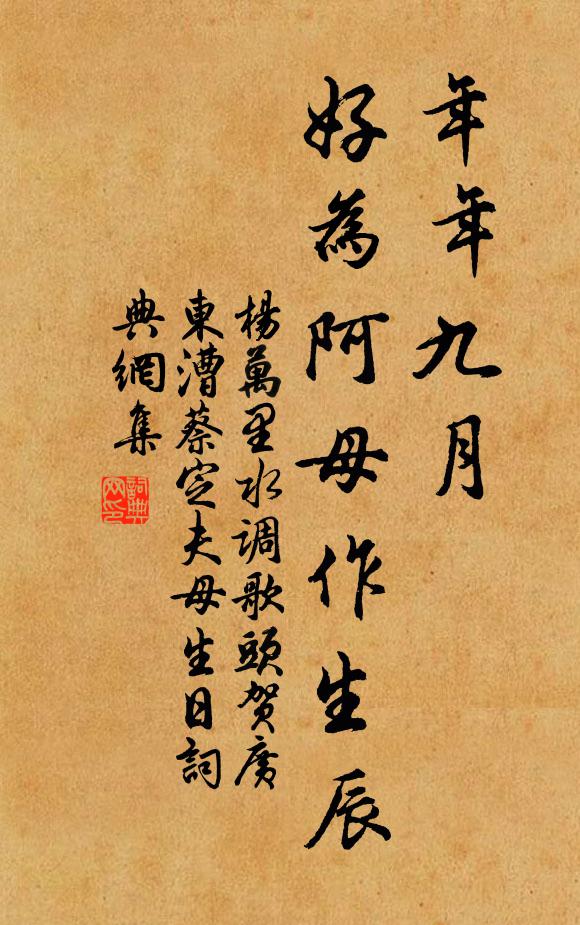 年年九月
好為阿母作生辰
楊萬里水调歌頭賀廣
東漕蔡定夫母生日詞
典網集
詞典網印